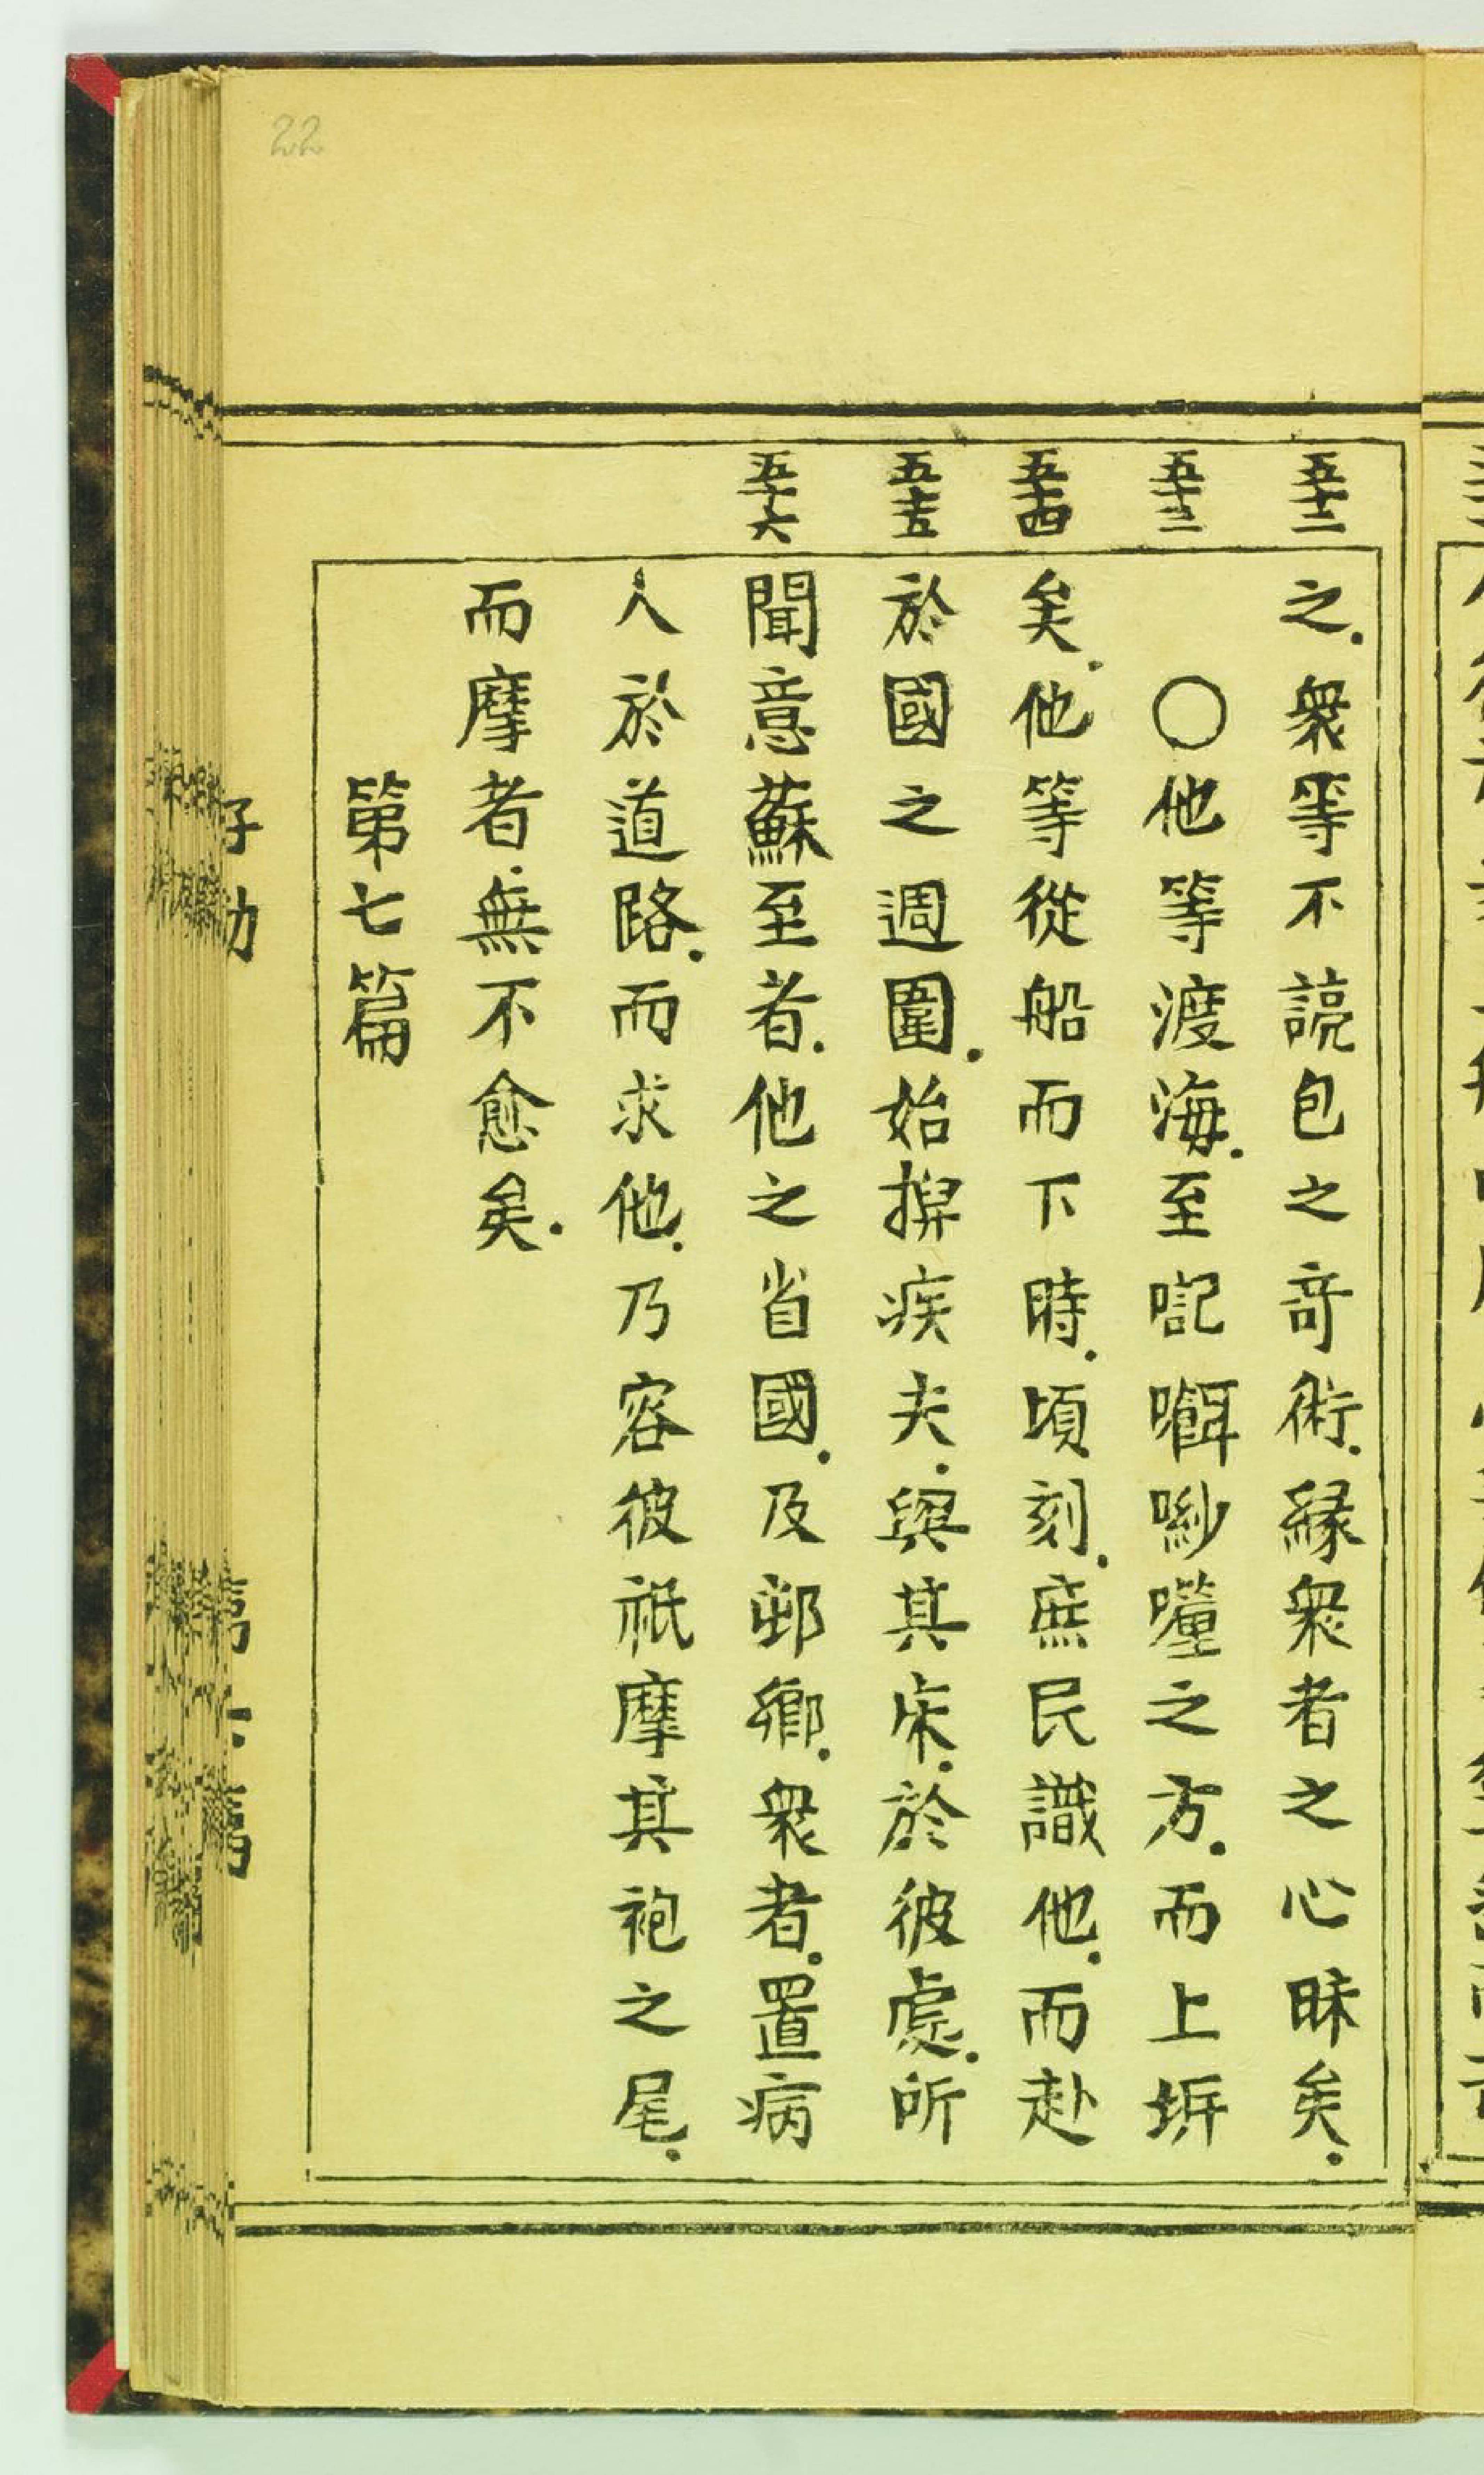 22
五十二
之．衆等不諒包之竒術．縁衆者之心昧矣．
五十三
〇他等渡海．至𠱓㘔唦㘒之方．而上垪
五十四
矣．他等從船而下時．頃刻．庶民識他．而赴
五十五
於國之週圍．始捭疾夫．與其床．於彼處．所
五十六
聞意蘇至者．他之省國．及邨鄉．衆者．置病
人於道路．而求他．乃容彼祇摩其袍之尾．
而摩者．無不愈矣．
第七篇